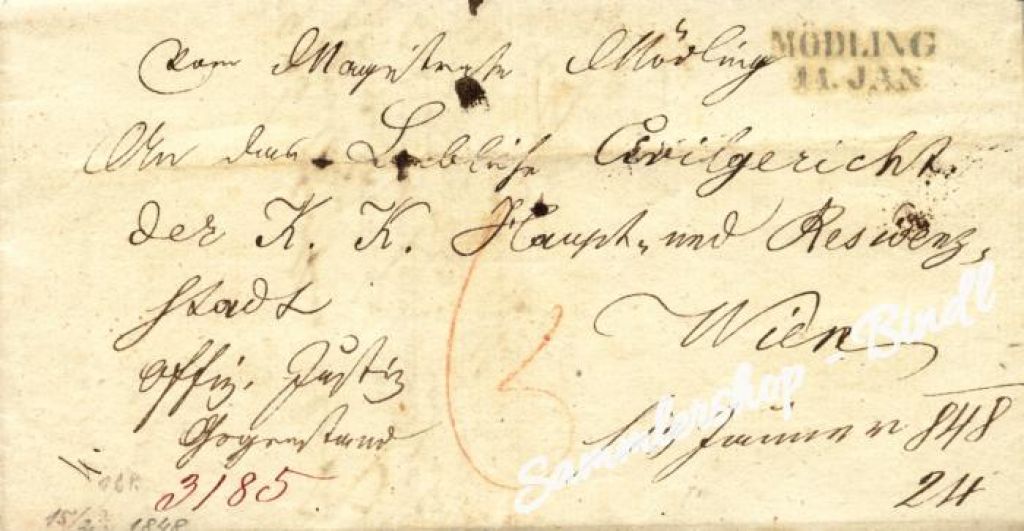 MÖDLING
11. JAN
Vom Magistrate Mödling
An das Löbliche Civilgericht
der K. K. Haupt- und Residenz-
stadt
Wien
Offiz. Justiz
Gegenstand
Jänner 848
24
3185
6
15/2 1848
Sammlershop - Bindl